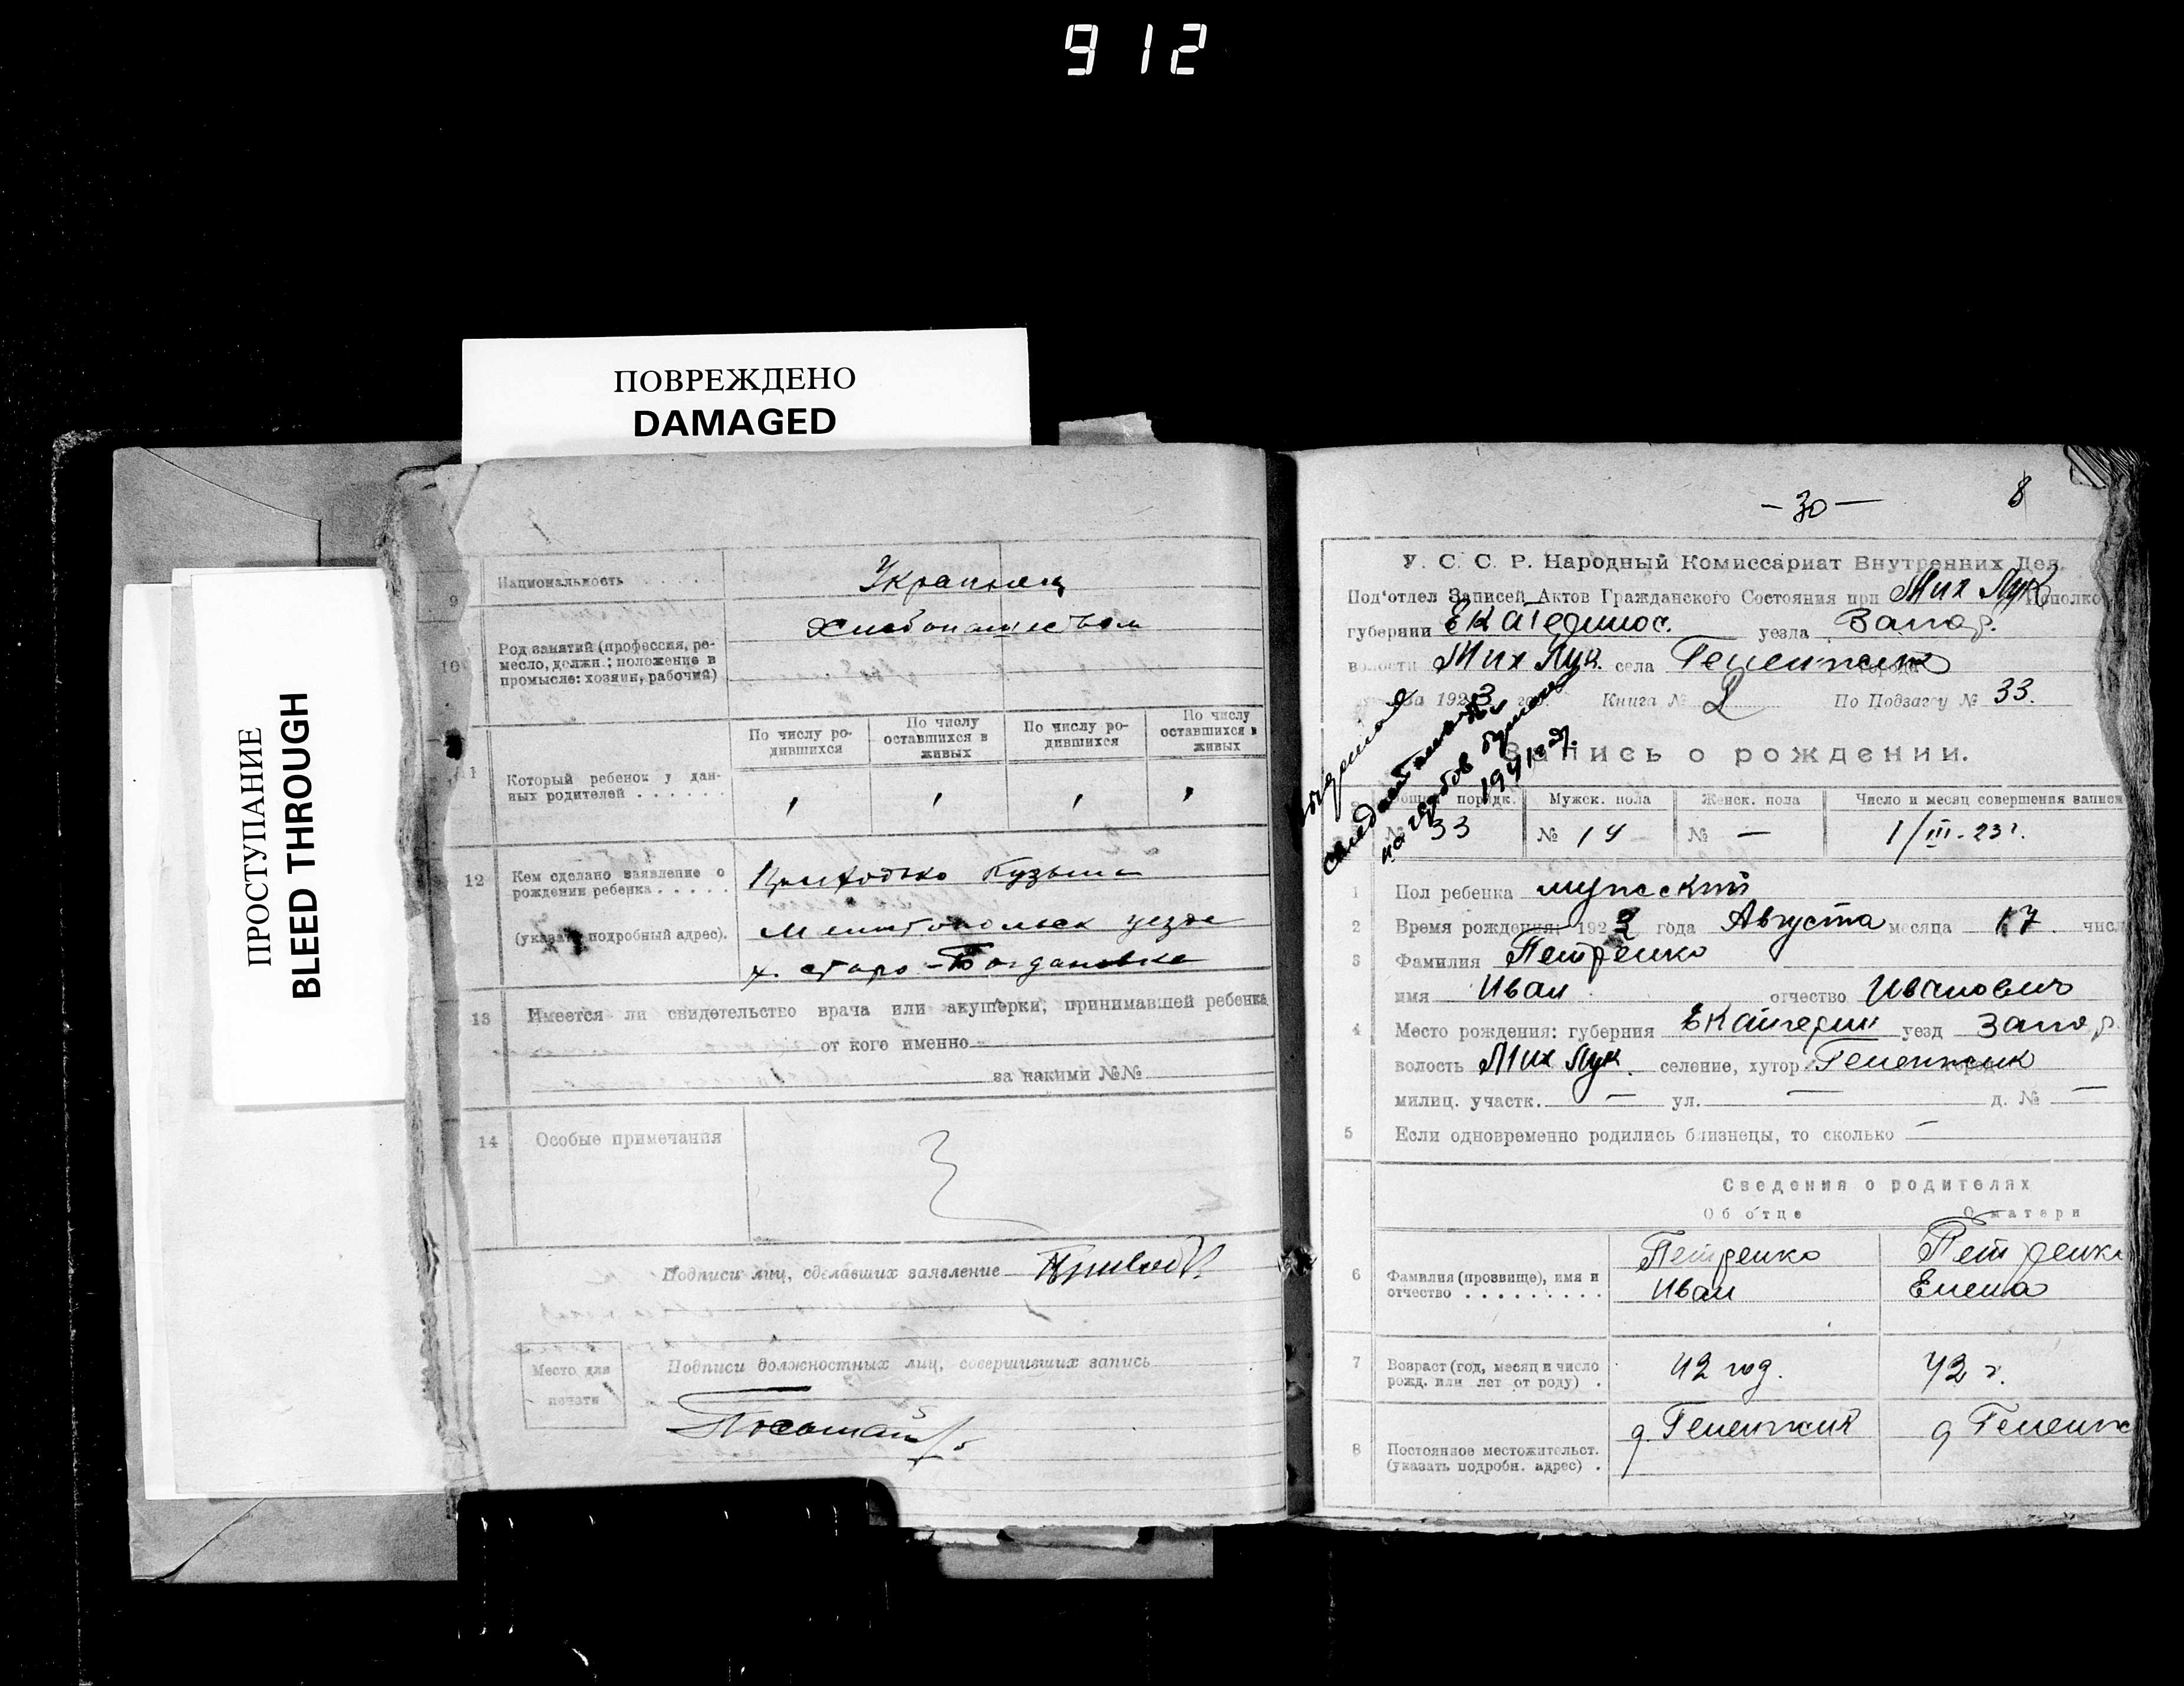 912
ПОВРЕЖДЕНО
DAMAGED
ПРОСТУПАНИЕ
BLEED THROUGH
9 Национальность . . . . Украинец
10 Род занятий (профессия, ре-
месло, должн.; положение в
промысле: хозяин, рабочий)
Хлебопашеством
По числу ро-
дившихся
По числу
оставшихся в
живых
По числу ро-
дившихся
По числу
оставшихся в
живых
11 Который ребенок у дан-
ных родителей . . . . . .
12 Кем сделано заявление о
рождении ребенка . . . . .
(указать подробный адрес).
Приходько Кузьма
Мелитопольск уезда
х. старо-Богдановка
13 Имеется ли свидетельство врача или акушерки, принимавшей ребенка
от кого именно
за какими №№
14 Особые примечания
Подписи лиц, сделавших заявление
Место для
печати
Подписи должностных лиц, совершивших запись
-30- 8
У. С. С. Р. Народный Комиссариат Внутренних Дел.
Под'отдел Записей Актов Гражданского Состояния при Мих Лук Исполко
губернии Екатеринос. уезда Запор.
волости Мих Лук. села
За 1923 год. Книга № 2 По Подзагсу № 33.
1941
Запись о рождении.
Общий порядк. Мужск. пола Женск. пола Число и месяц совершения записи
№ 33 № 14 № — 1/III-23г.
1 Пол ребенка мужский
2 Время рождения: 1922 года Августа месяца 17 числ
3 Фамилия Петренко
имя Иван отчество Иванович
4 Место рождения: губерния Екатерин уезд Запор
волость Мих Лук. селение, хутор
милиц. участк. — ул. — д. № —
5 Если одновременно родились близнецы, то сколько —
Сведения о родителях
Об отце О матери
6 Фамилия (прозвище), имя и
отчество . . . . . . . . .
Петренко Петренко
Иван Елена
7 Возраст (год, месяц и число
рожд. или лет от роду) .
42 год. 42 г.
8 Постоянное местожительст.
(указать подробн. адрес) .